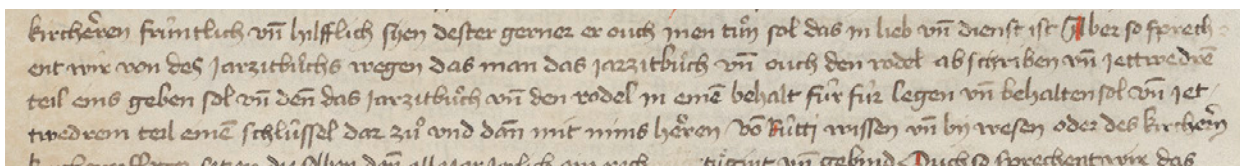 kircherēn früntlich vn̄ hilfflich syen dester gerner er ouch inen tůn sol das in lieb vn̄ dienst ist Aber so sprech
ent wir von des Jarzitbůchs wegen das man das Jarzitbůch vn̄ ouch den rodel ab schriben vn̄ Jettwedrē
teil eins geben sol vn̄ den̄ das Jarzitbůch vn̄ den rodel in einē behalt für für legen vn̄ behalten sol vn̄ Jet
twedrem teil einē schlüssel dar zů vnd dan̄ mit mins herēn vō Rütti wissen vn̄ by wesen oder des kirchern̄
so sprechent wir das